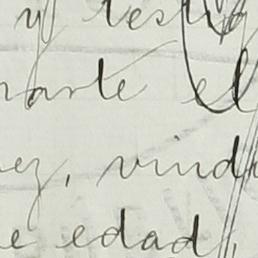 y testig
narte el
ez, viud
e edad,